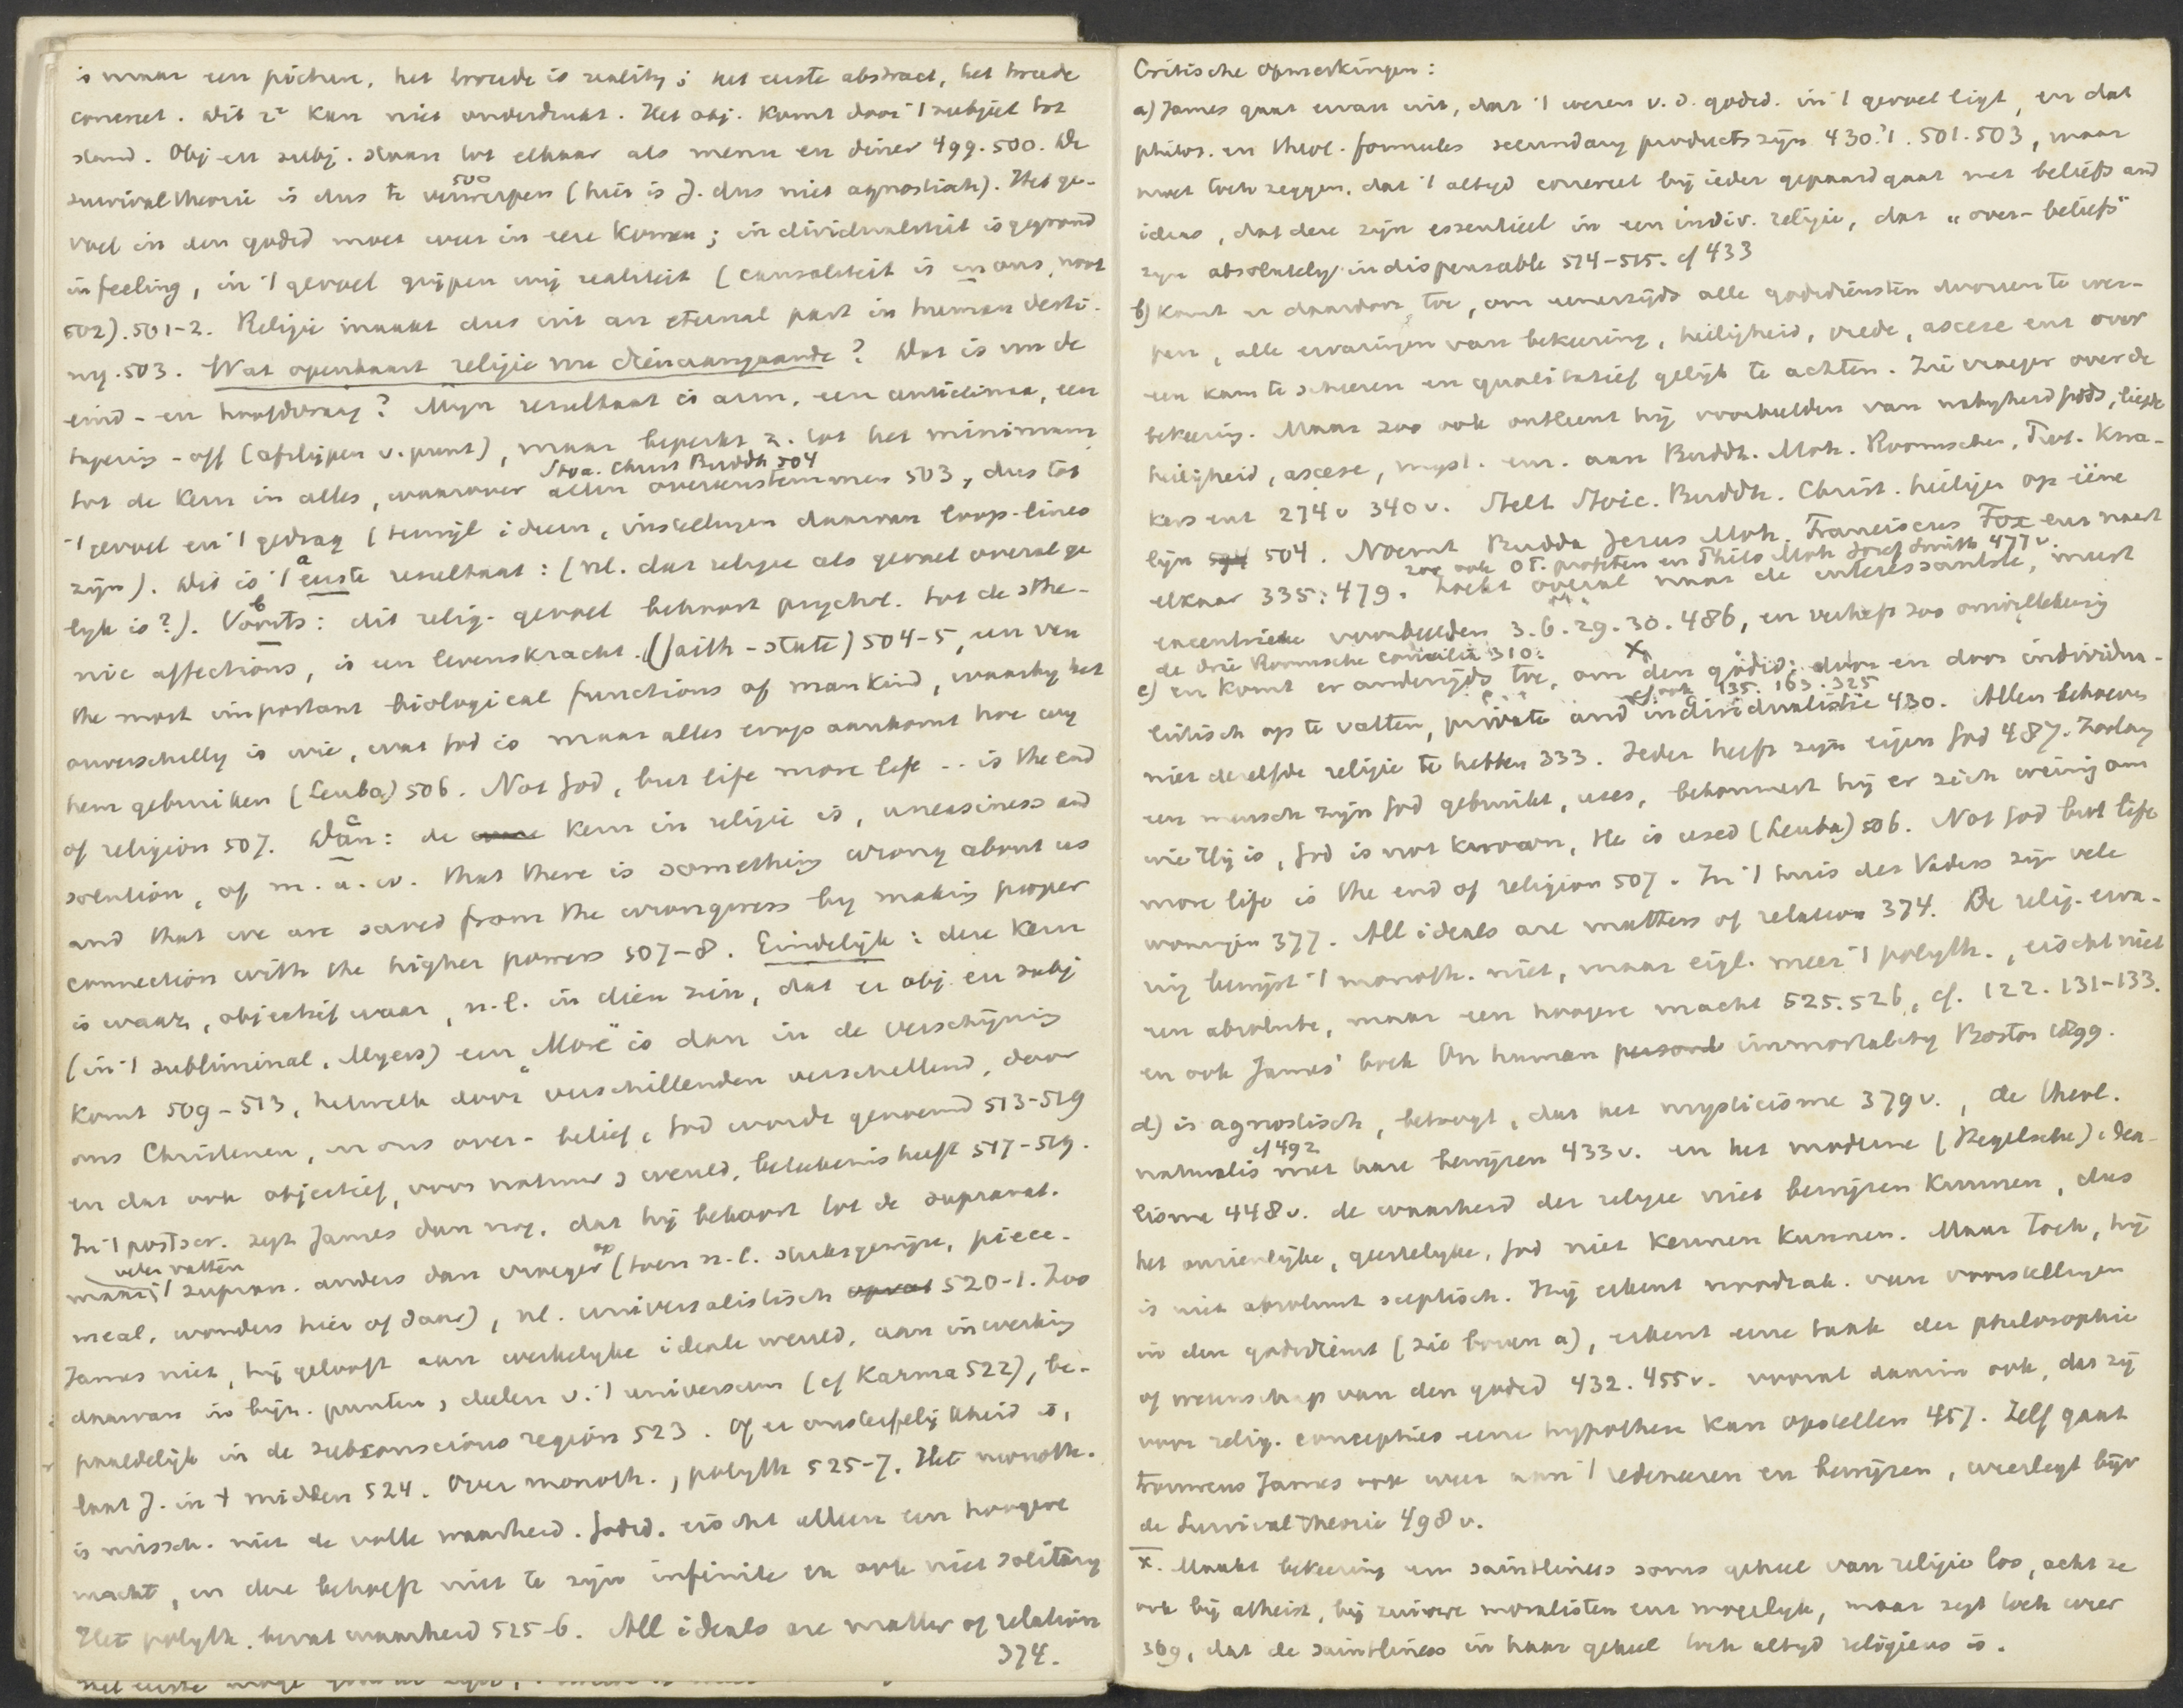 is maar een picture, het tweede is reality; het eerste abstract, het tweede
concreet. Dit 2e kan niet onderdrukt. Het obj. komt door 't subject tot
stand. Obj en subj. staan tot elkaar als menu en diner 499. 500. De
survivaltheorie is dus te verwerpen 500 (hier is J. dus niet agnostisch). Het ge-
voel in den godsd moet weer in eere komen; individualiteit is gegrond
in feeling, in 't gevoel grijpen wij realiteit (causaliteit is in ons, noot
502). 501-2. Religie maakt dus uit an eternal part in human desti-
ny. 503. Wat openbaart religie nu dienaangaande? Dat is nu de
eind- en hoofdvraag? Mijn resultaat is arm, een anticlimax, een
tapering-off (afslijpen v. punt), maar beperkt z. tot het minimum
Stoa. Christ Buddh 504
tot de kern in alles, waarover allen overeenstemmen 503, dus tot
't gevoel en 't gedrag (terwijl ideeën, instellingen daarvan loop-lines
zijn). Dit is 't a eerste resultaat: (nl. dat religie als gevoel overal ge
lijk is?). b Voorts: dit relig. gevoel behoort psychol. tot de sthe-
nic affections, is een levenskracht. (faith-state) 504-5, een van
the most important biological functions of mankind, waarbij het
onverschillig is wie, wat God is maar alles erop aankomt hoe wij
hem gebruiken (Leuba) 506. Not God, but life more life .. is the end
of religion 507. c Dan: de kern in religie is, uneasiness and
solution, of m. a. w. that there is something wrong about us
and that we are saved from the wrongness by making proper
connection with the higher powers 507-8. Eindelijk: deze kern
is waar, objectief waar, n.l. in dien zin, dat er obj en subj
(in 't subliminal, Myers) een "More" is dan in de verschijning
komt 509-513, hetwelk door verschillenden verschillend, door
ons Christenen, in ons over-belief, God wordt genoemd 513-519
en dat ook objectief, voor natuur & wereld, beteekenis heeft 517-519.
In 't postscr. zegt James dan nog, dat hij behoort tot de supranat.
velen vatten
't supran. anders dan vroeger op (toen n.l. stuksgewijze, piece-
meal, wonders hier of daar), nl. universalistisch 520-1. Zoo
James niet, hij gelooft aan werkelijke ideale wereld, aan inwerking
daarvan in bijz. punten, deelen v. 't universum (cf Karma 522), be-
paaldelijk in de subconscious region 523. Of er onsterfelijkheid is,
laat J. in 't midden 524. Over monoth., polyth 525-7. Het monoth.
is missch. niet de volle waarheid. Godsd. eischt alleen een hoogere
macht, en deze behoeft niet te zijn infinite en ook niet solitary
Het polyth. bevat waarheid 525-6. All ideals are matter of relation
374.
Critische opmerkingen:
a) James gaat ervan uit, dat 't wezen v. d. godsd. in 't gevoel ligt, en dat
philos. en theol. formules secundary products zijn 430. 1. 501. 503, maar
moet toch zeggen, dat 't altijd concreet bij ieder gepaard gaat met beliefs and
ideas, dat deze zijn essentieel in een indiv. religie, dat "over-beliefs"
zijn absolutely indispensable 514-515. cf 433
b) komt er daardoor toe, om eenerzijds alle godsdiensten dooreen te wer-
pen, alle ervaringen van bekeering, heiligheid, vrede, ascese enz over
een kam te scheeren en qualitatief gelijk te achten. Zie vroeger over de
bekeering. Maar zoo ook ontleent hij voorbeelden van nabijheid Gods, liefde
heiligheid, ascese, myst. enz. aan Buddh. Moh. Roomschen, Prot. Kwa-
kers enz 274 v 340 v. Stelt Stoic. Buddh. Christ. heiligen op ééne
lijn 504. Noemt Budda Jesus Moh. Franciscus Fox enz naast
zoo ook OT. profeten en Philo Moh Josef Smith 477 v.
elkaar 335. 479. Zoekt overal naar de interessantste, meest
excentrieke voorbeelden 3. 6. 29. 30. 486, en verheft zoo onwillekeurig
de drie Roomsche concilia 310.
c) en komt er anderzijds toe, om x den godsd: door en door individua-
cf ook 135. 163. 325
listisch op te vatten, private and individualistic 430. Allen behoeven
niet dezelfde religie te hebben 333. Ieder heeft zijn eigen God 487. Zoolang
een mensch zijn God gebruikt, uses, bekommert hij er zich weinig om
wie Hij is, God is not known, He is used (Leuba) 506. Not God but life
more life is the end of religion 507. In 't huis des Vaders zijn vele
woningen 377. All ideals are matters of relation 374. De relig. erva-
ring bewijst 't monoth. niet, maar eigl. meer 't polyth., eischt niet
een absolute, maar een hoogere macht 525. 526, cf. 122. 131-133.
en ook James' boek On human immortality Boston 1899.
d) is agnostisch, betoogt, dat het mysticisme 379 v., de theol.
cf 492
naturalis met hare bewijzen 433 v. en het moderne (Hegelsche) idea-
lisme 448 v. de waarheid der religie niet bewijzen kunnen, dus
het onzienlijke, geestelijke, God niet kennen kunnen. Maar toch, hij
is niet absoluut sceptisch. Hij erkent noodzak. van voorstellingen
in den godsdienst (zie boven a), erkent eene taak der philosophie
of wetenschap van den godsd 432. 455 v. vooral daarin ook, dat zij
voor relig. concepties eene hypothese kan opstellen 457. Zelf gaat
trouwens James ook weer aan 't redeneeren en bewijzen, weerlegt bijv
de Survivaltheorie 498 v.
x. Maakt bekeering en saintliness soms geheel van religie los, acht ze
ook bij atheist, bij zuivere moralisten enz mogelijk, maar zegt toch weer
369, dat de saintliness in haar geheel toch altijd religieus is.